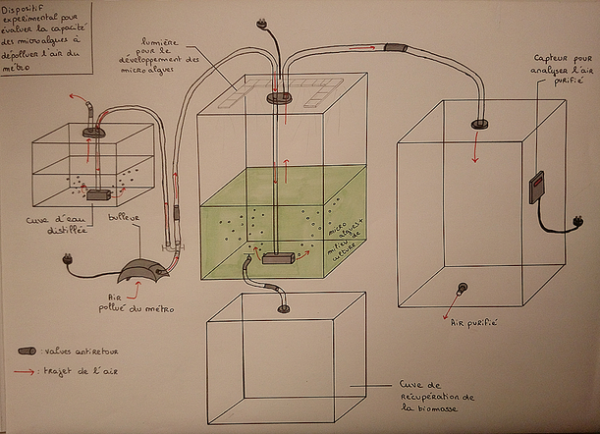 Dispositif
expérimental pour
évaluer la capacité
des microalgues à
dépolluer l'air du
métro
lumière
pour le
développement des
microalgues
Capteur pour
analyser l'air
purifié
Cuve d'eau
distillée
bulleur
Air
pollué du métro
micro
algues+
milieu de
culture
Air purifié
: valves antiretour
: trajet de l'air
Cuve de
récupération de
la biomasse